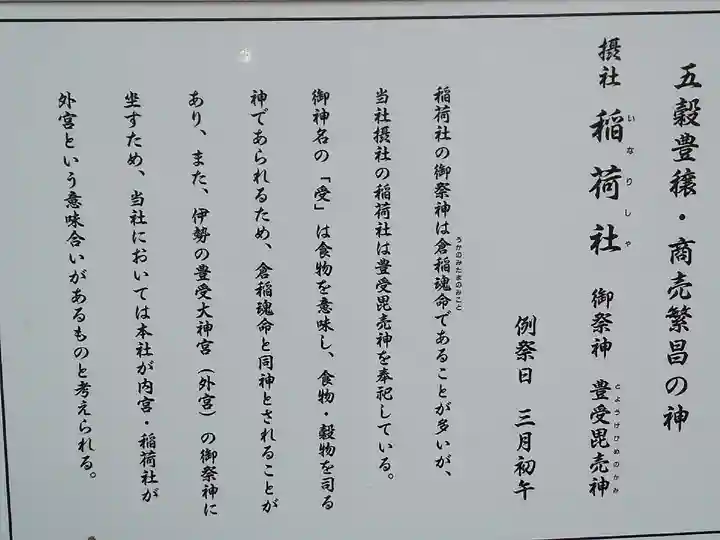 五穀豊穣・商売繁昌の神
摂社 稲荷社 御祭神 豊受毘売神
いなりしゃ
とようけひめのかみ
例祭日 三月初午
稲荷社の御祭神は倉稲魂命であることが多いが、
うかのみたまのみこと
当社摂社の稲荷社は豊受毘売神を奉祀している。
御神名の「受」は食物を意味し、食物・穀物を司る
神であられるため、倉稲魂命と同神とされることが
あり、また、伊勢の豊受大神宮(外宮)の御祭神に
坐すため、当社においては本社が内宮・稲荷社が
外宮という意味合いがあるものと考えられる。